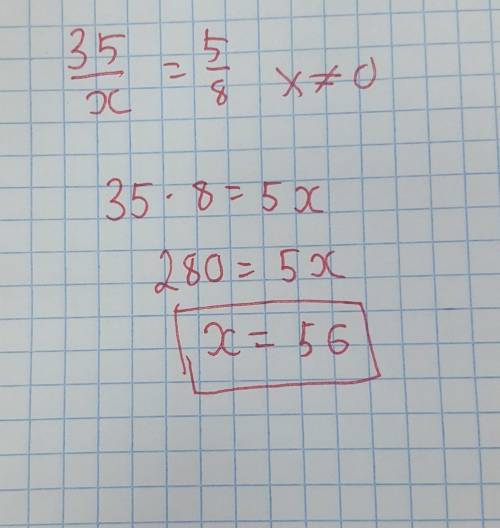 35/x = 5/8 x ≠ 0
35 · 8 = 5x
280 = 5x
x = 56